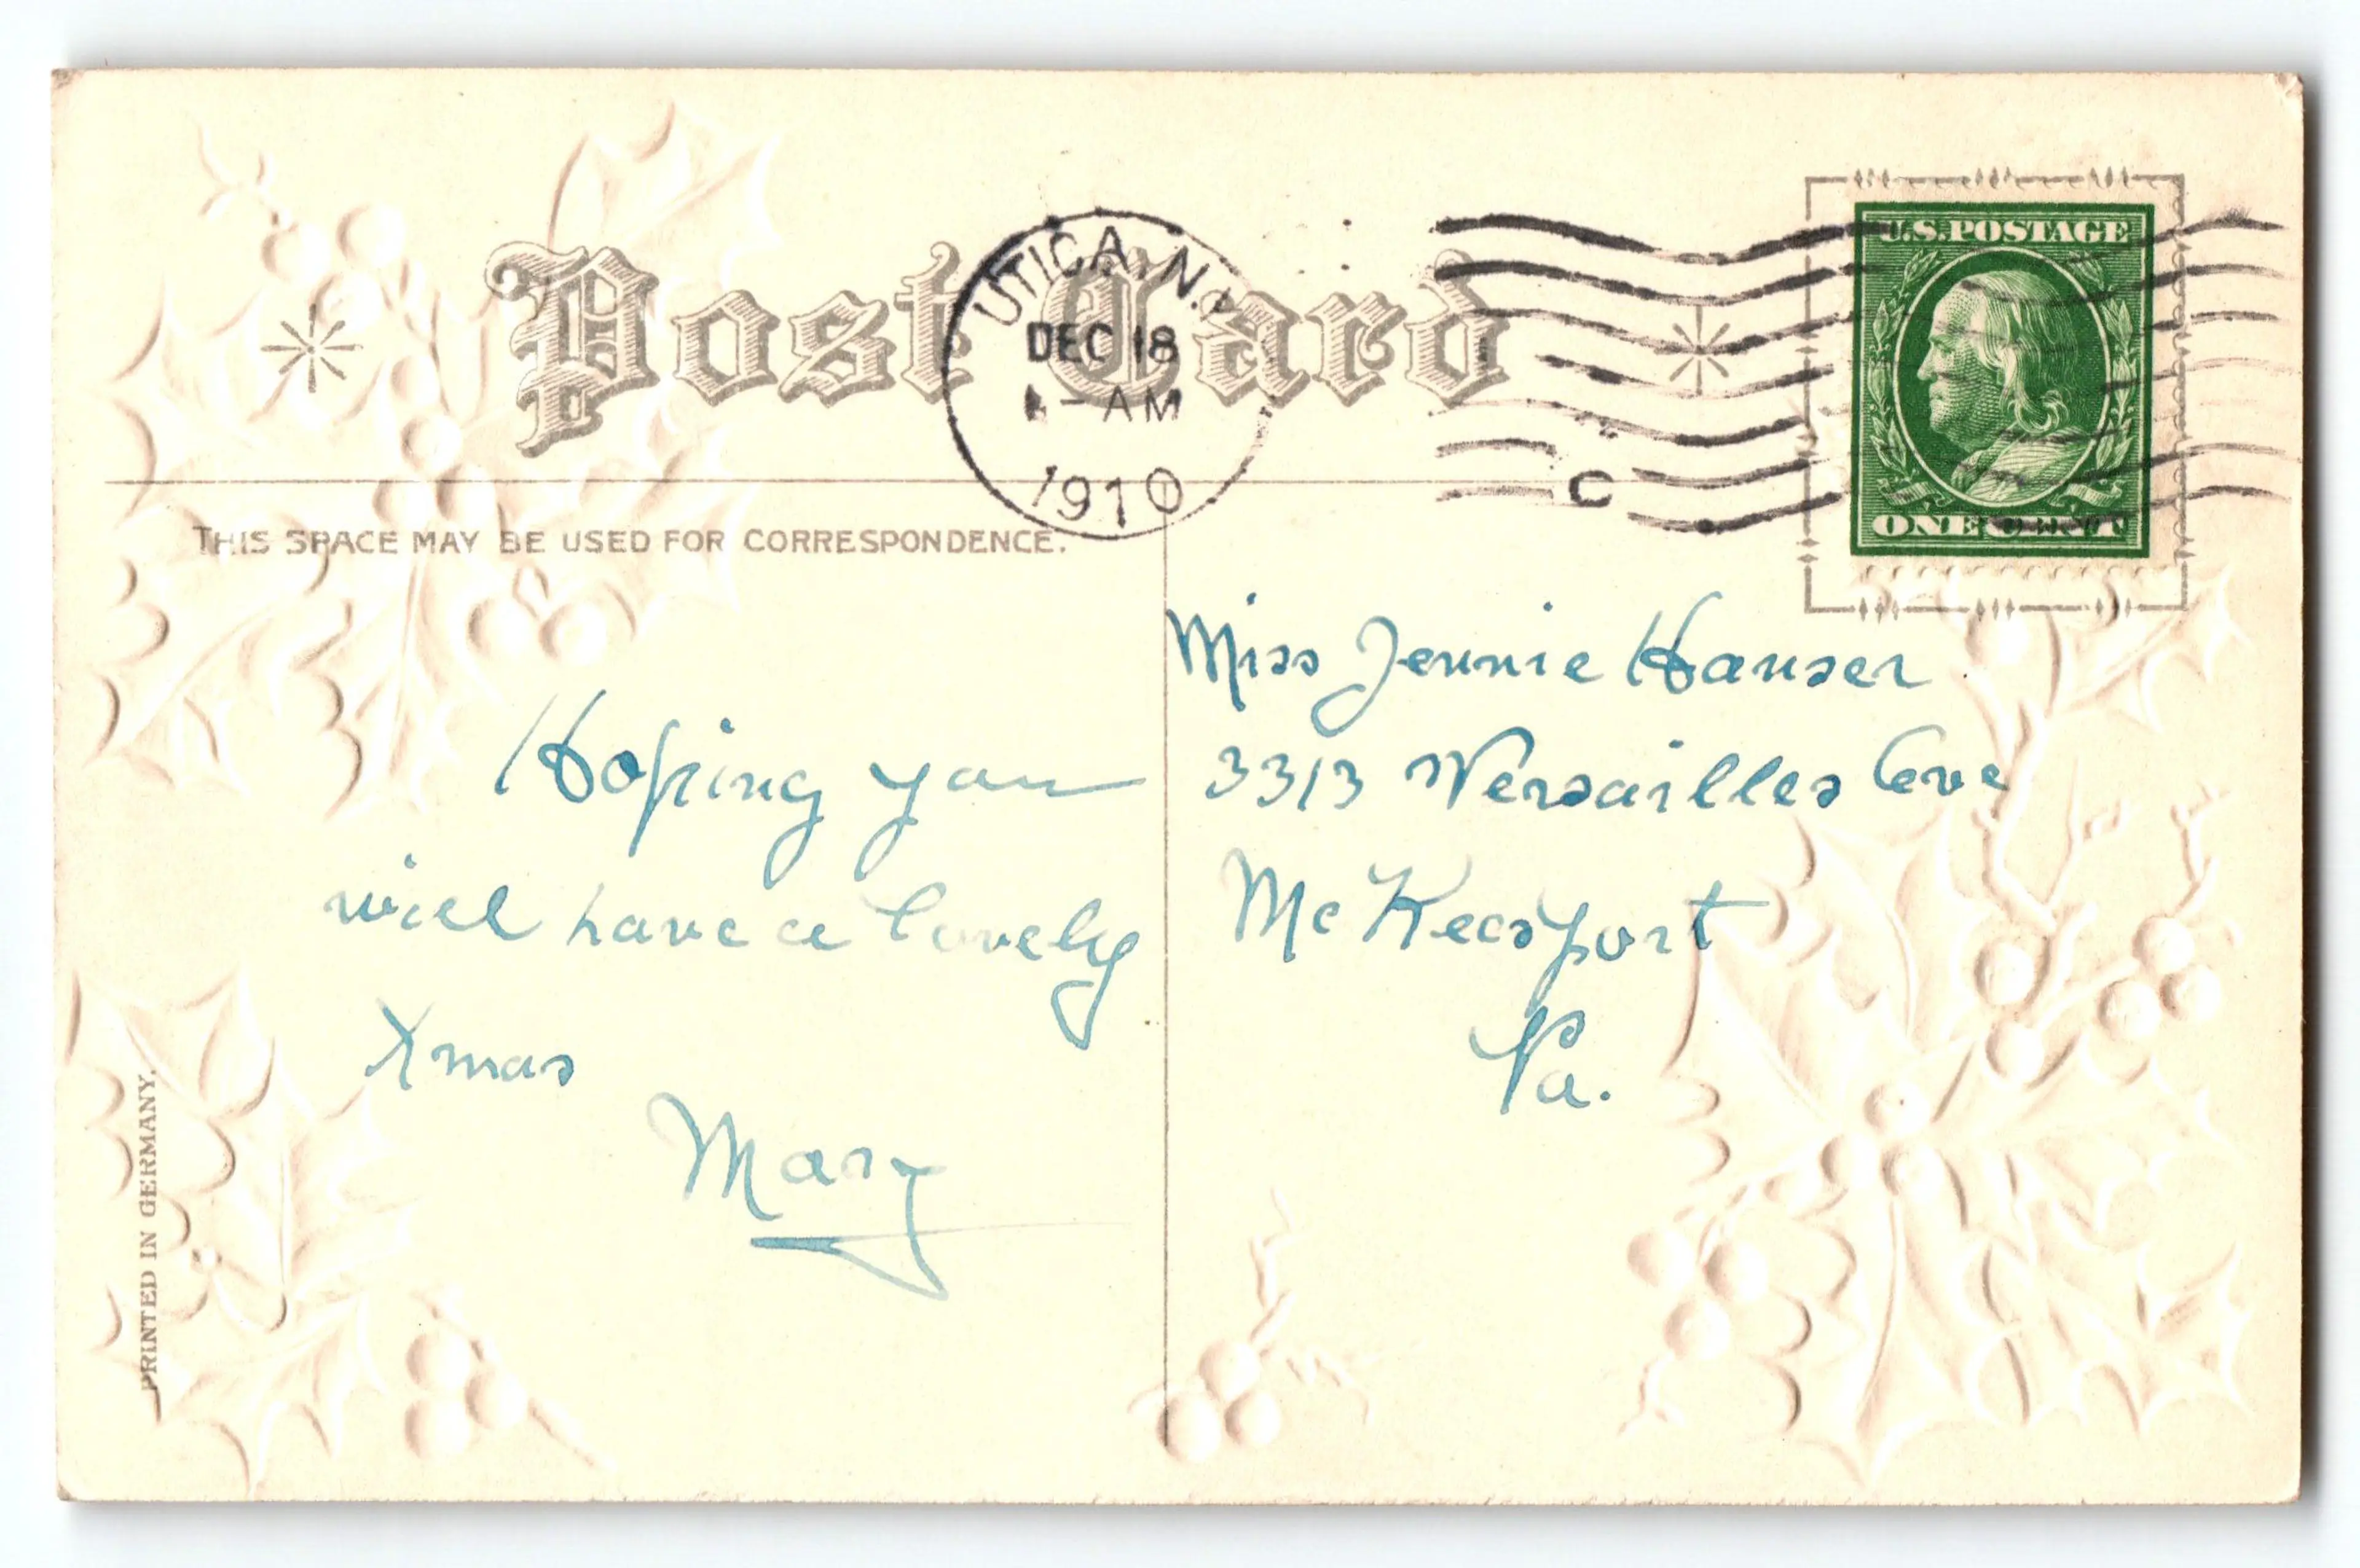 Post Card
UTICA, N.Y.
DEC 18
- AM
1910
C
U.S. POSTAGE
ONE CENT
THIS SPACE MAY BE USED FOR CORRESPONDENCE.
Hoping you
will have a lovely
Xmas
Mary
Miss Jennie Hauser
3313 Versailles Ave
McKeesport
Pa.
PRINTED IN GERMANY.